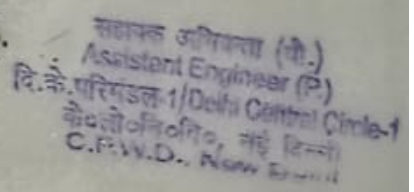 सहायक अभियन्ता (यो.)
Assistent Engineer (P.)
दि.के.परिमंडल-1/Delhi Central Circle-1
के०लो०नि०वि०, नई दिल्ली
C.P.W.D., New Delhi